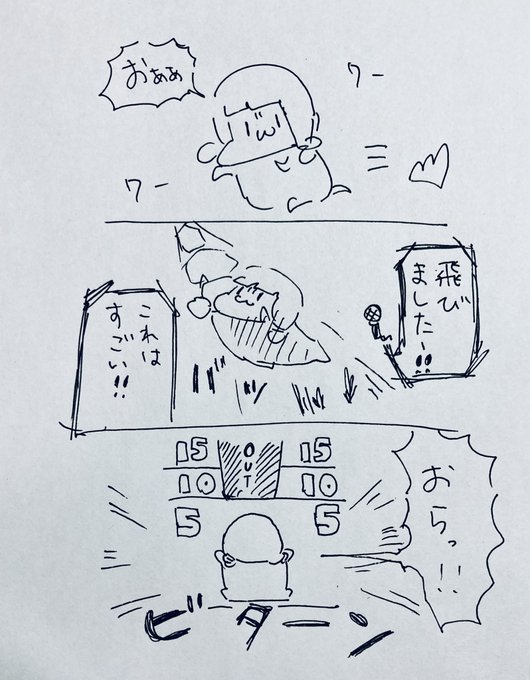 おぁぁ
ワー
ワー
飛び
ましたー!!
これは
すごい!!
バビッ
おらっ!!
15 OUT 15
10 10
5 5
ビターン